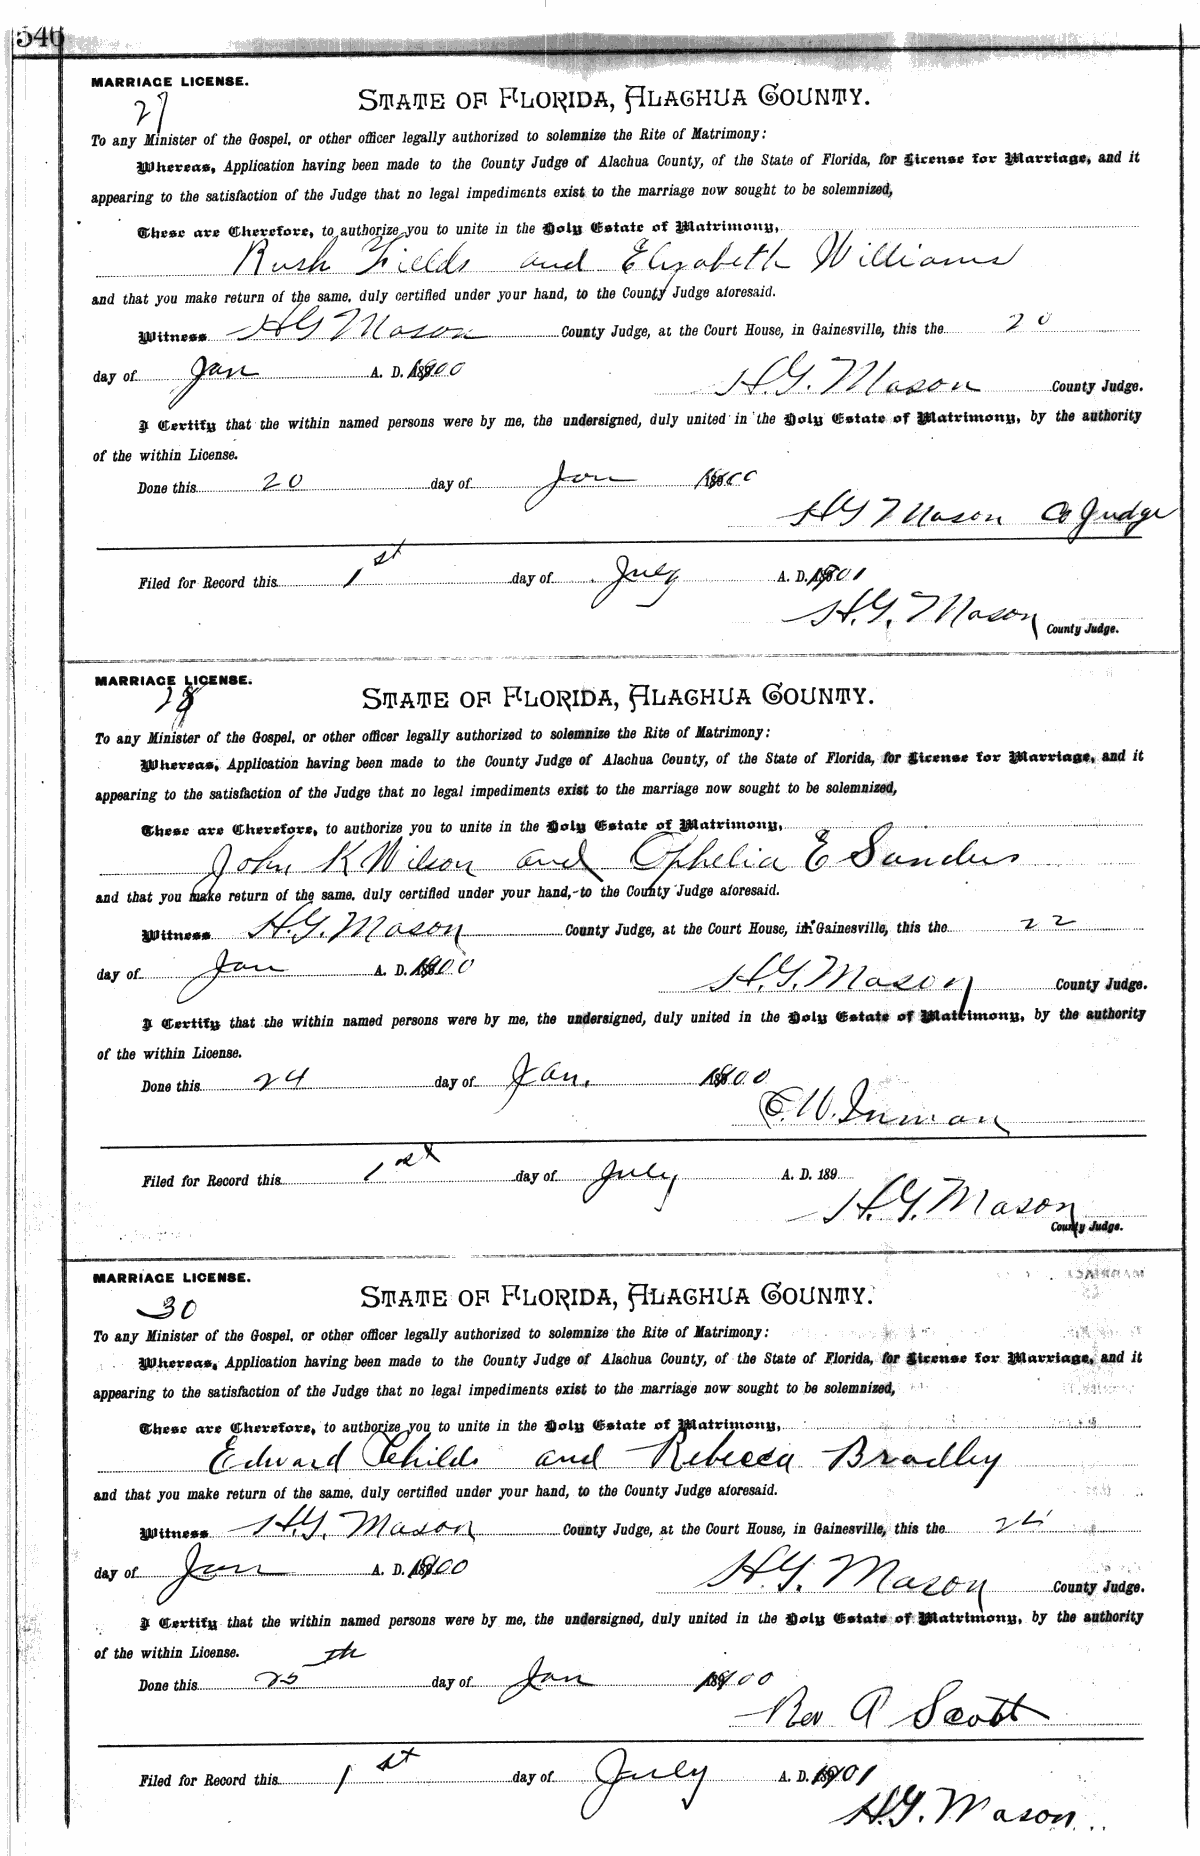 546
MARRIAGE LICENSE.
27
STATE OF FLORIDA, ALACHUA COUNTY.
To any Minister of the Gospel, or other officer legally authorized to solemnize the Rite of Matrimony:
Whereas, Application having been made to the County Judge of Alachua County, of the State of Florida, for License for Marriage, and it
appearing to the satisfaction of the Judge that no legal impediments exist to the marriage now sought to be solemnized,
These are Therefore, to authorize you to unite in the Holy Estate of Matrimony,
Rush Fields and Elizabeth Williams
and that you make return of the same, duly certified under your hand, to the County Judge aforesaid.
Witness H G Mason County Judge, at the Court House, in Gainesville, this the 20
day of Jan A. D. 1900
H. G. Mason County Judge.
I Certify that the within named persons were by me, the undersigned, duly united in the Holy Estate of Matrimony, by the authority
of the within License.
Done this 20 day of Jan 1900
H G Mason Co Judge
Filed for Record this 1st day of July A. D. 1901
H. G. Mason
County Judge.
MARRIAGE LICENSE.
28
STATE OF FLORIDA, ALACHUA COUNTY.
To any Minister of the Gospel, or other officer legally authorized to solemnize the Rite of Matrimony:
Whereas, Application having been made to the County Judge of Alachua County, of the State of Florida, for License for Marriage, and it
appearing to the satisfaction of the Judge that no legal impediments exist to the marriage now sought to be solemnized,
These are Therefore, to authorize you to unite in the Holy Estate of Matrimony,
John K Wilson and Ophelia E Sanders
and that you make return of the same, duly certified under your hand, to the County Judge aforesaid.
Witness H. G. Mason County Judge, at the Court House, in Gainesville, this the 22
day of Jan A. D. 1900
H. G. Mason County Judge.
I Certify that the within named persons were by me, the undersigned, duly united in the Holy Estate of Matrimony, by the authority
of the within License.
Done this 24 day of Jan. 1900
E. W. Inman
Filed for Record this 1st day of July A. D. 189
H. G. Mason
County Judge.
MARRIAGE LICENSE.
30
STATE OF FLORIDA, ALACHUA COUNTY.
To any Minister of the Gospel, or other officer legally authorized to solemnize the Rite of Matrimony:
Whereas, Application having been made to the County Judge of Alachua County, of the State of Florida, for License for Marriage, and it
appearing to the satisfaction of the Judge that no legal impediments exist to the marriage now sought to be solemnized,
These are Therefore, to authorize you to unite in the Holy Estate of Matrimony,
Edward Childs and Rebecca Bradley
and that you make return of the same, duly certified under your hand, to the County Judge aforesaid.
Witness H. G. Mason County Judge, at the Court House, in Gainesville, this the 24
day of Jan A. D. 1900
H. G. Mason County Judge.
I Certify that the within named persons were by me, the undersigned, duly united in the Holy Estate of Matrimony, by the authority
of the within License.
Done this 25th day of Jan 1900
Rev A Scott
Filed for Record this 1st day of July A. D. 1901
H. G. Mason